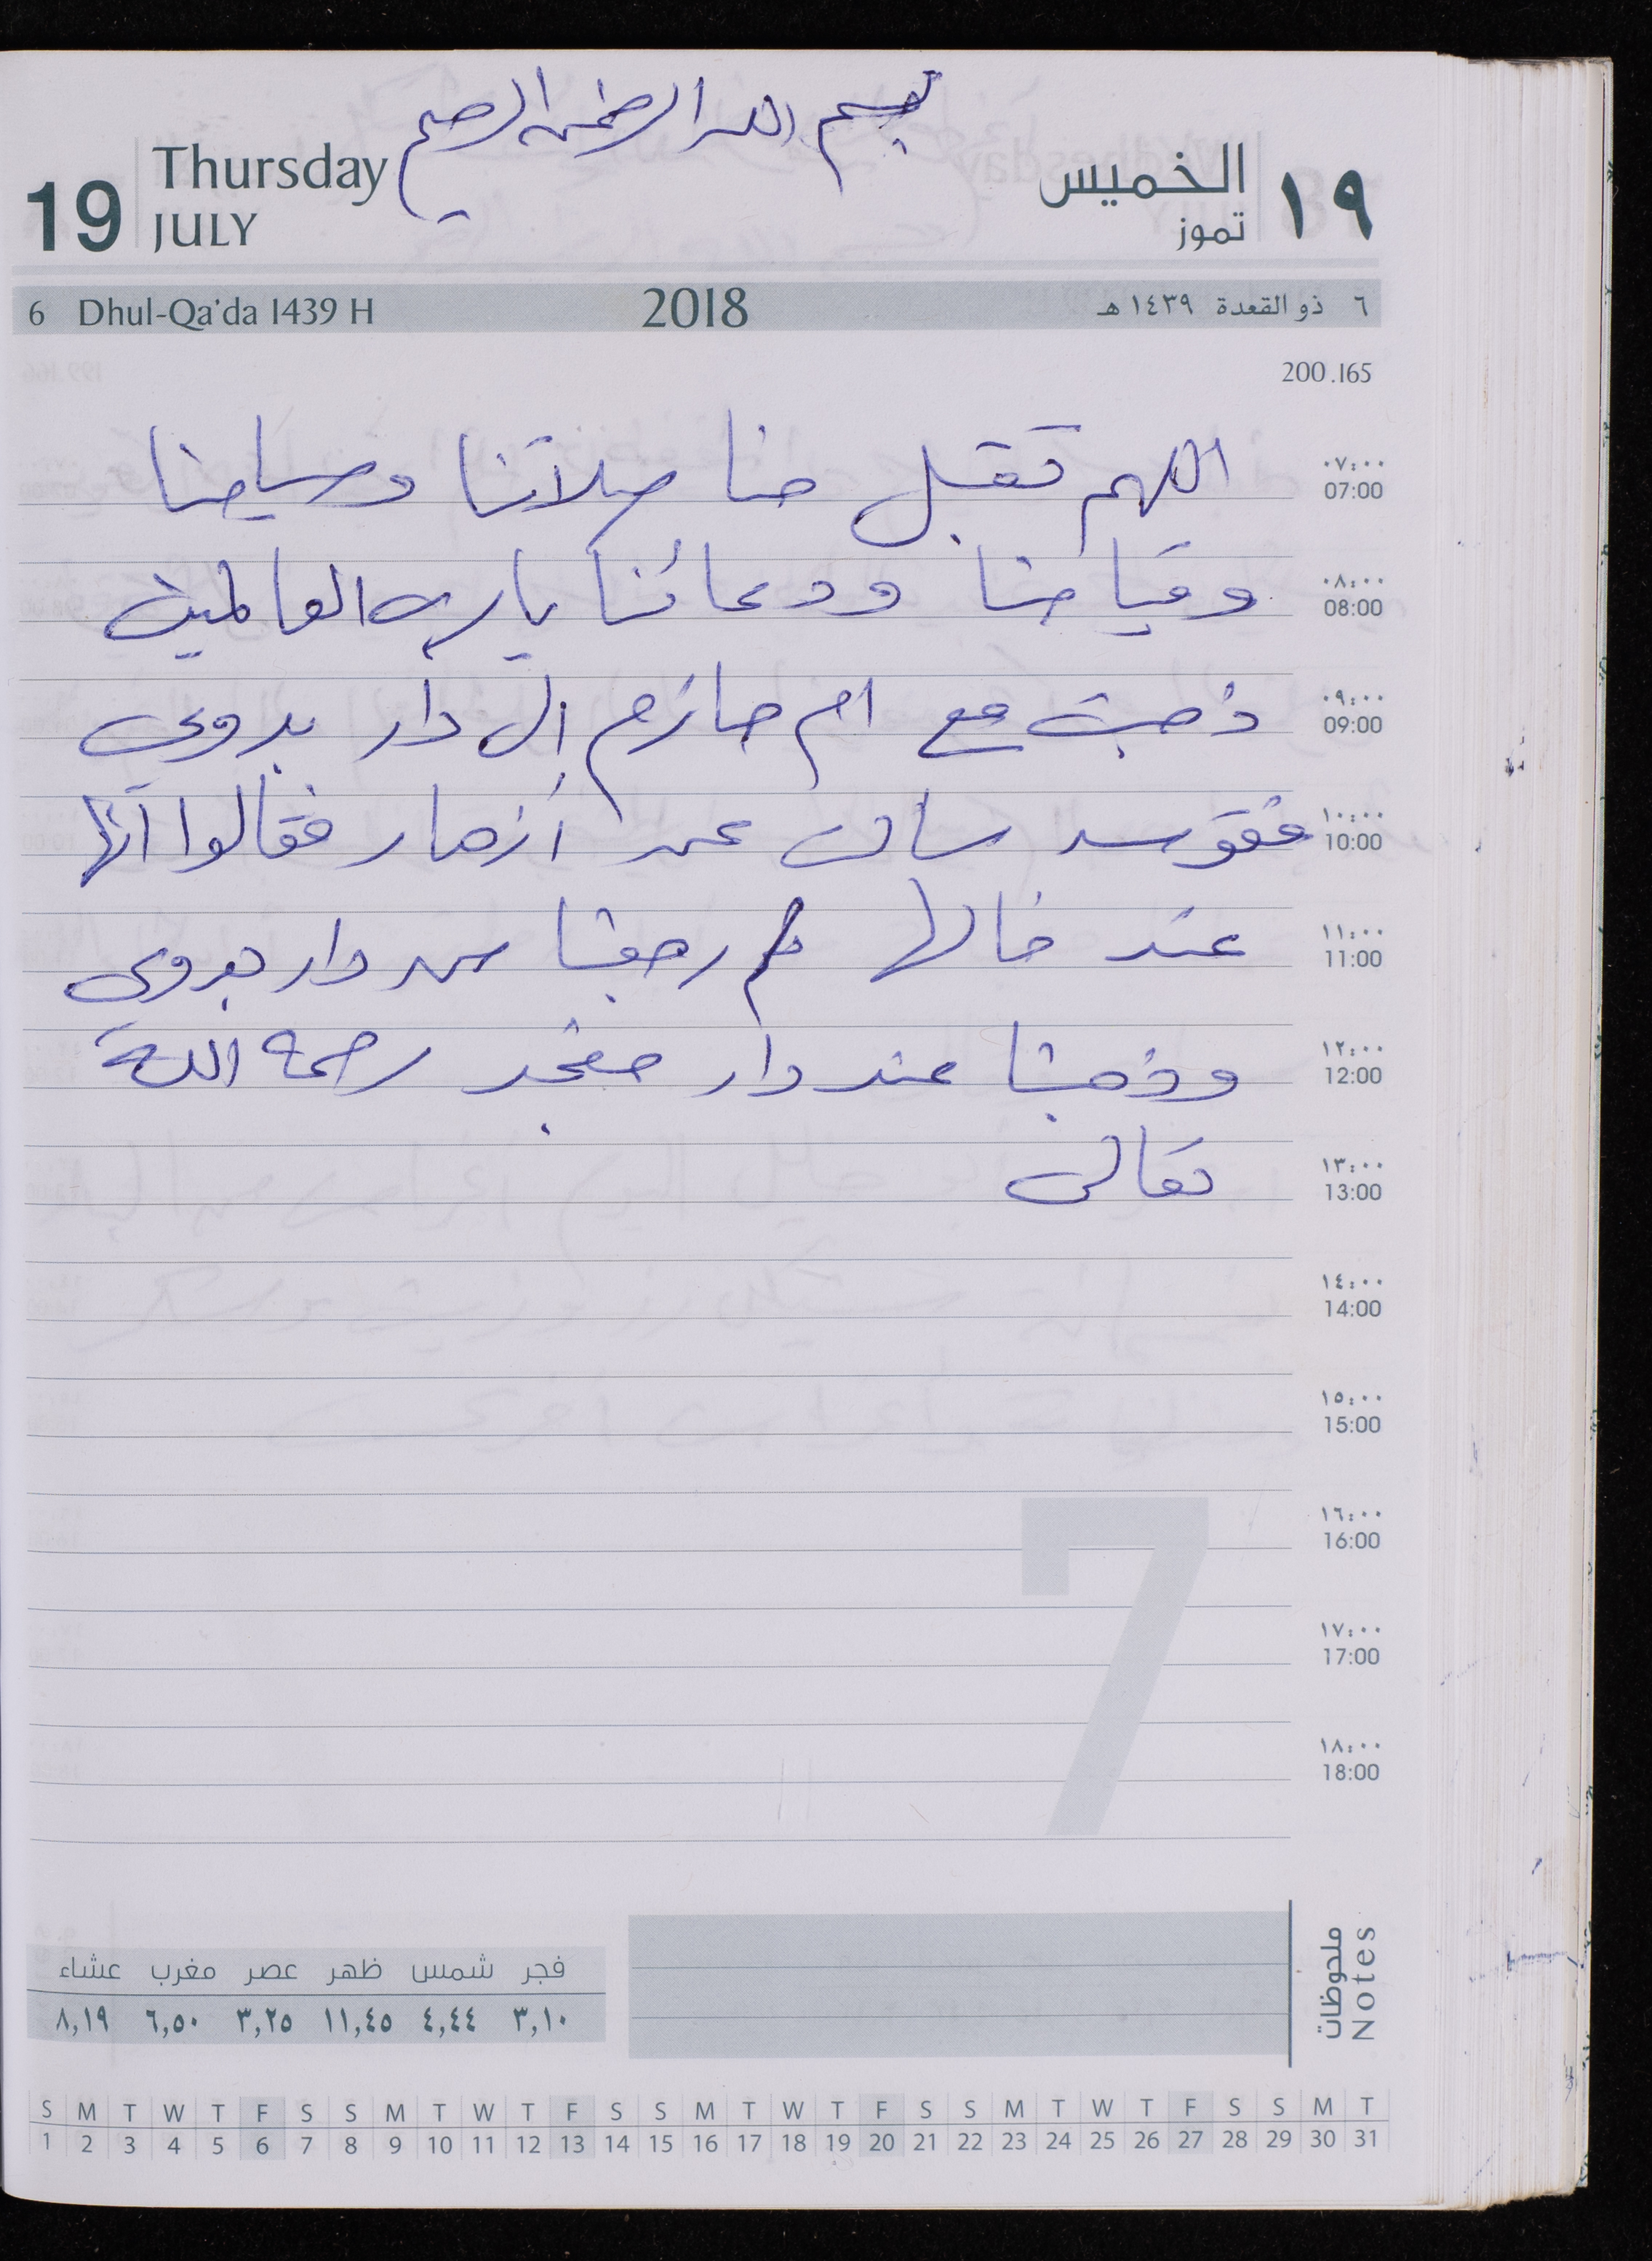 بسم الله الرحمن الرحيم
19 Thursday JULY
الخميس ١٩
تموز
6 Dhul-Qa'da 1439 H 2018 ٦ ذو القعدة ١٤٣٩ هـ
200.165
٠٧:٠٠ 07:00 اللهم تقبل منا صلاتنا وصيامنا
٠٨:٠٠ 08:00 وقيامنا ودعائنا يا رب العالمين
٠٩:٠٠ 09:00 ذهبت مع ام حازم الى دار بدوي
١٠:٠٠ 10:00 أزهار فقالوا انها
١١:٠٠ 11:00 عند خالها ثم رجعنا من دار بدوي
١٢:٠٠ 12:00 وذهبنا عند دار رحمه الله
١٣:٠٠ 13:00 تعالى
١٤:٠٠ 14:00
١٥:٠٠ 15:00
١٦:٠٠ 16:00
١٧:٠٠ 17:00
١٨:٠٠ 18:00
7
ملحوظات
Notes
فجر شمس ظهر عصر مغرب عشاء
٣,١٠ ٤,٤٤ ١١,٤٥ ٣,٢٥ ٦,٥٠ ٨,١٩
S M T W T F S S M T W T F S S M T W T F S S M T W T F S S M T
1 2 3 4 5 6 7 8 9 10 11 12 13 14 15 16 17 18 19 20 21 22 23 24 25 26 27 28 29 30 31